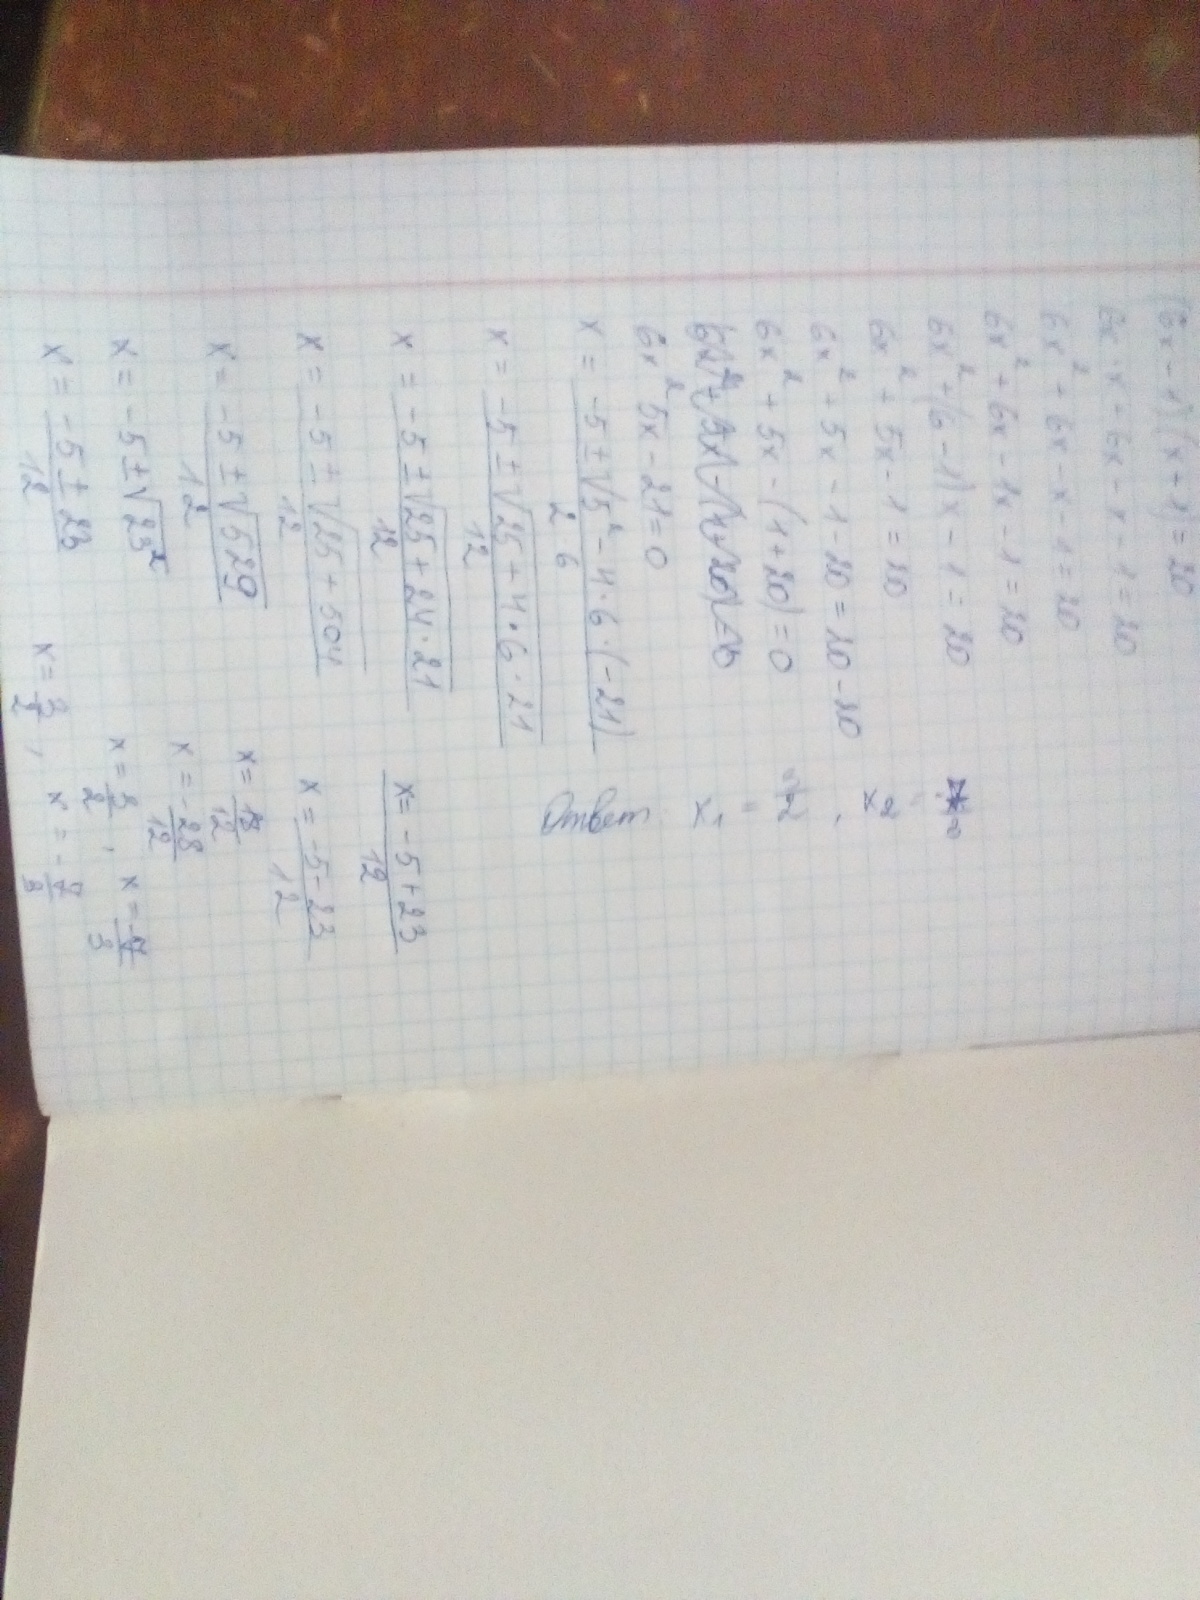 (6x-1)(x+1)=20
6x·x+6x-x-1=20
6x²+6x-x-1=20
6x²+6x-1x-1=20
6x²+(6-1)x-1=20
6x²+5x-1=20
6x²+5x-1-20=20-20
6x²+5x-(1+20)=0
6x² 5x-21=0
x = -5±√5²-4·6·(-21) / 2 6
x = -5±√25+4·6·21 / 12
x = -5±√25+24·21 / 12
x = -5±√25+504 / 12
x = -5±√529 / 12
x = -5±√23²
x = -5±23 / 12
x = 3/2, x = -7/3
Ответ x₁ = 3/2, x₂ =
x = -5+23 / 12
x = -5-23 / 12
x = 18/12
x = -28/12
x = 3/2, x = -7/3